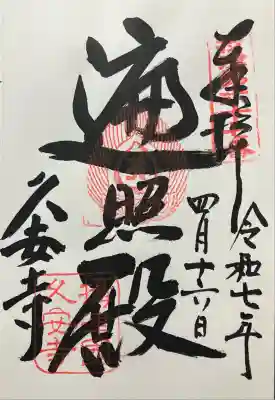 奉拝
令和七年
四月十六日
遍照殿
久安寺
久安寺